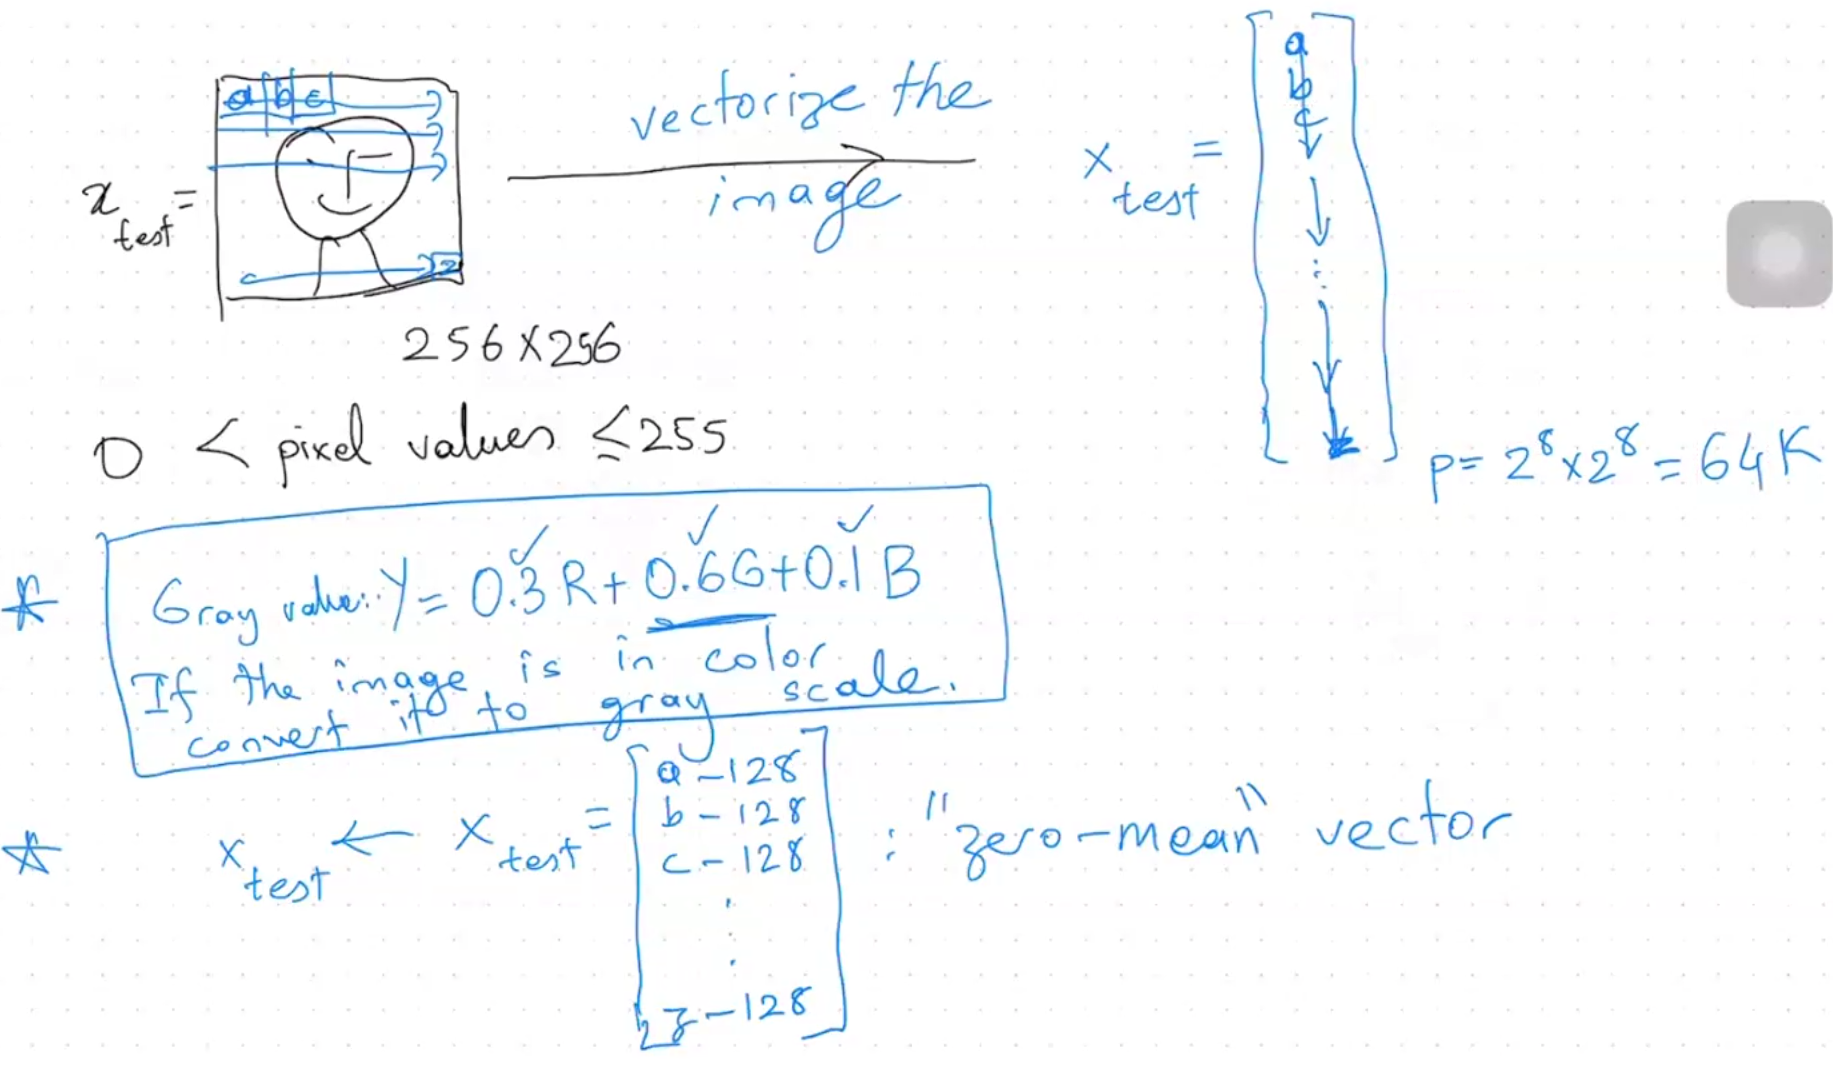 a b c
x test =
z
256×256
vectorize the
image
x test =
a
b
c
⋮
p= 2^8 x 2^8 = 64K
0 < pixel values ≤ 255
Gray value: Y = 0.3 R + 0.6G + 0.1 B
If the image is in color
convert it to gray scale.
x test ← x test =
a - 128
b - 128
c - 128
.
.
.
z - 128
: "zero-mean" vector